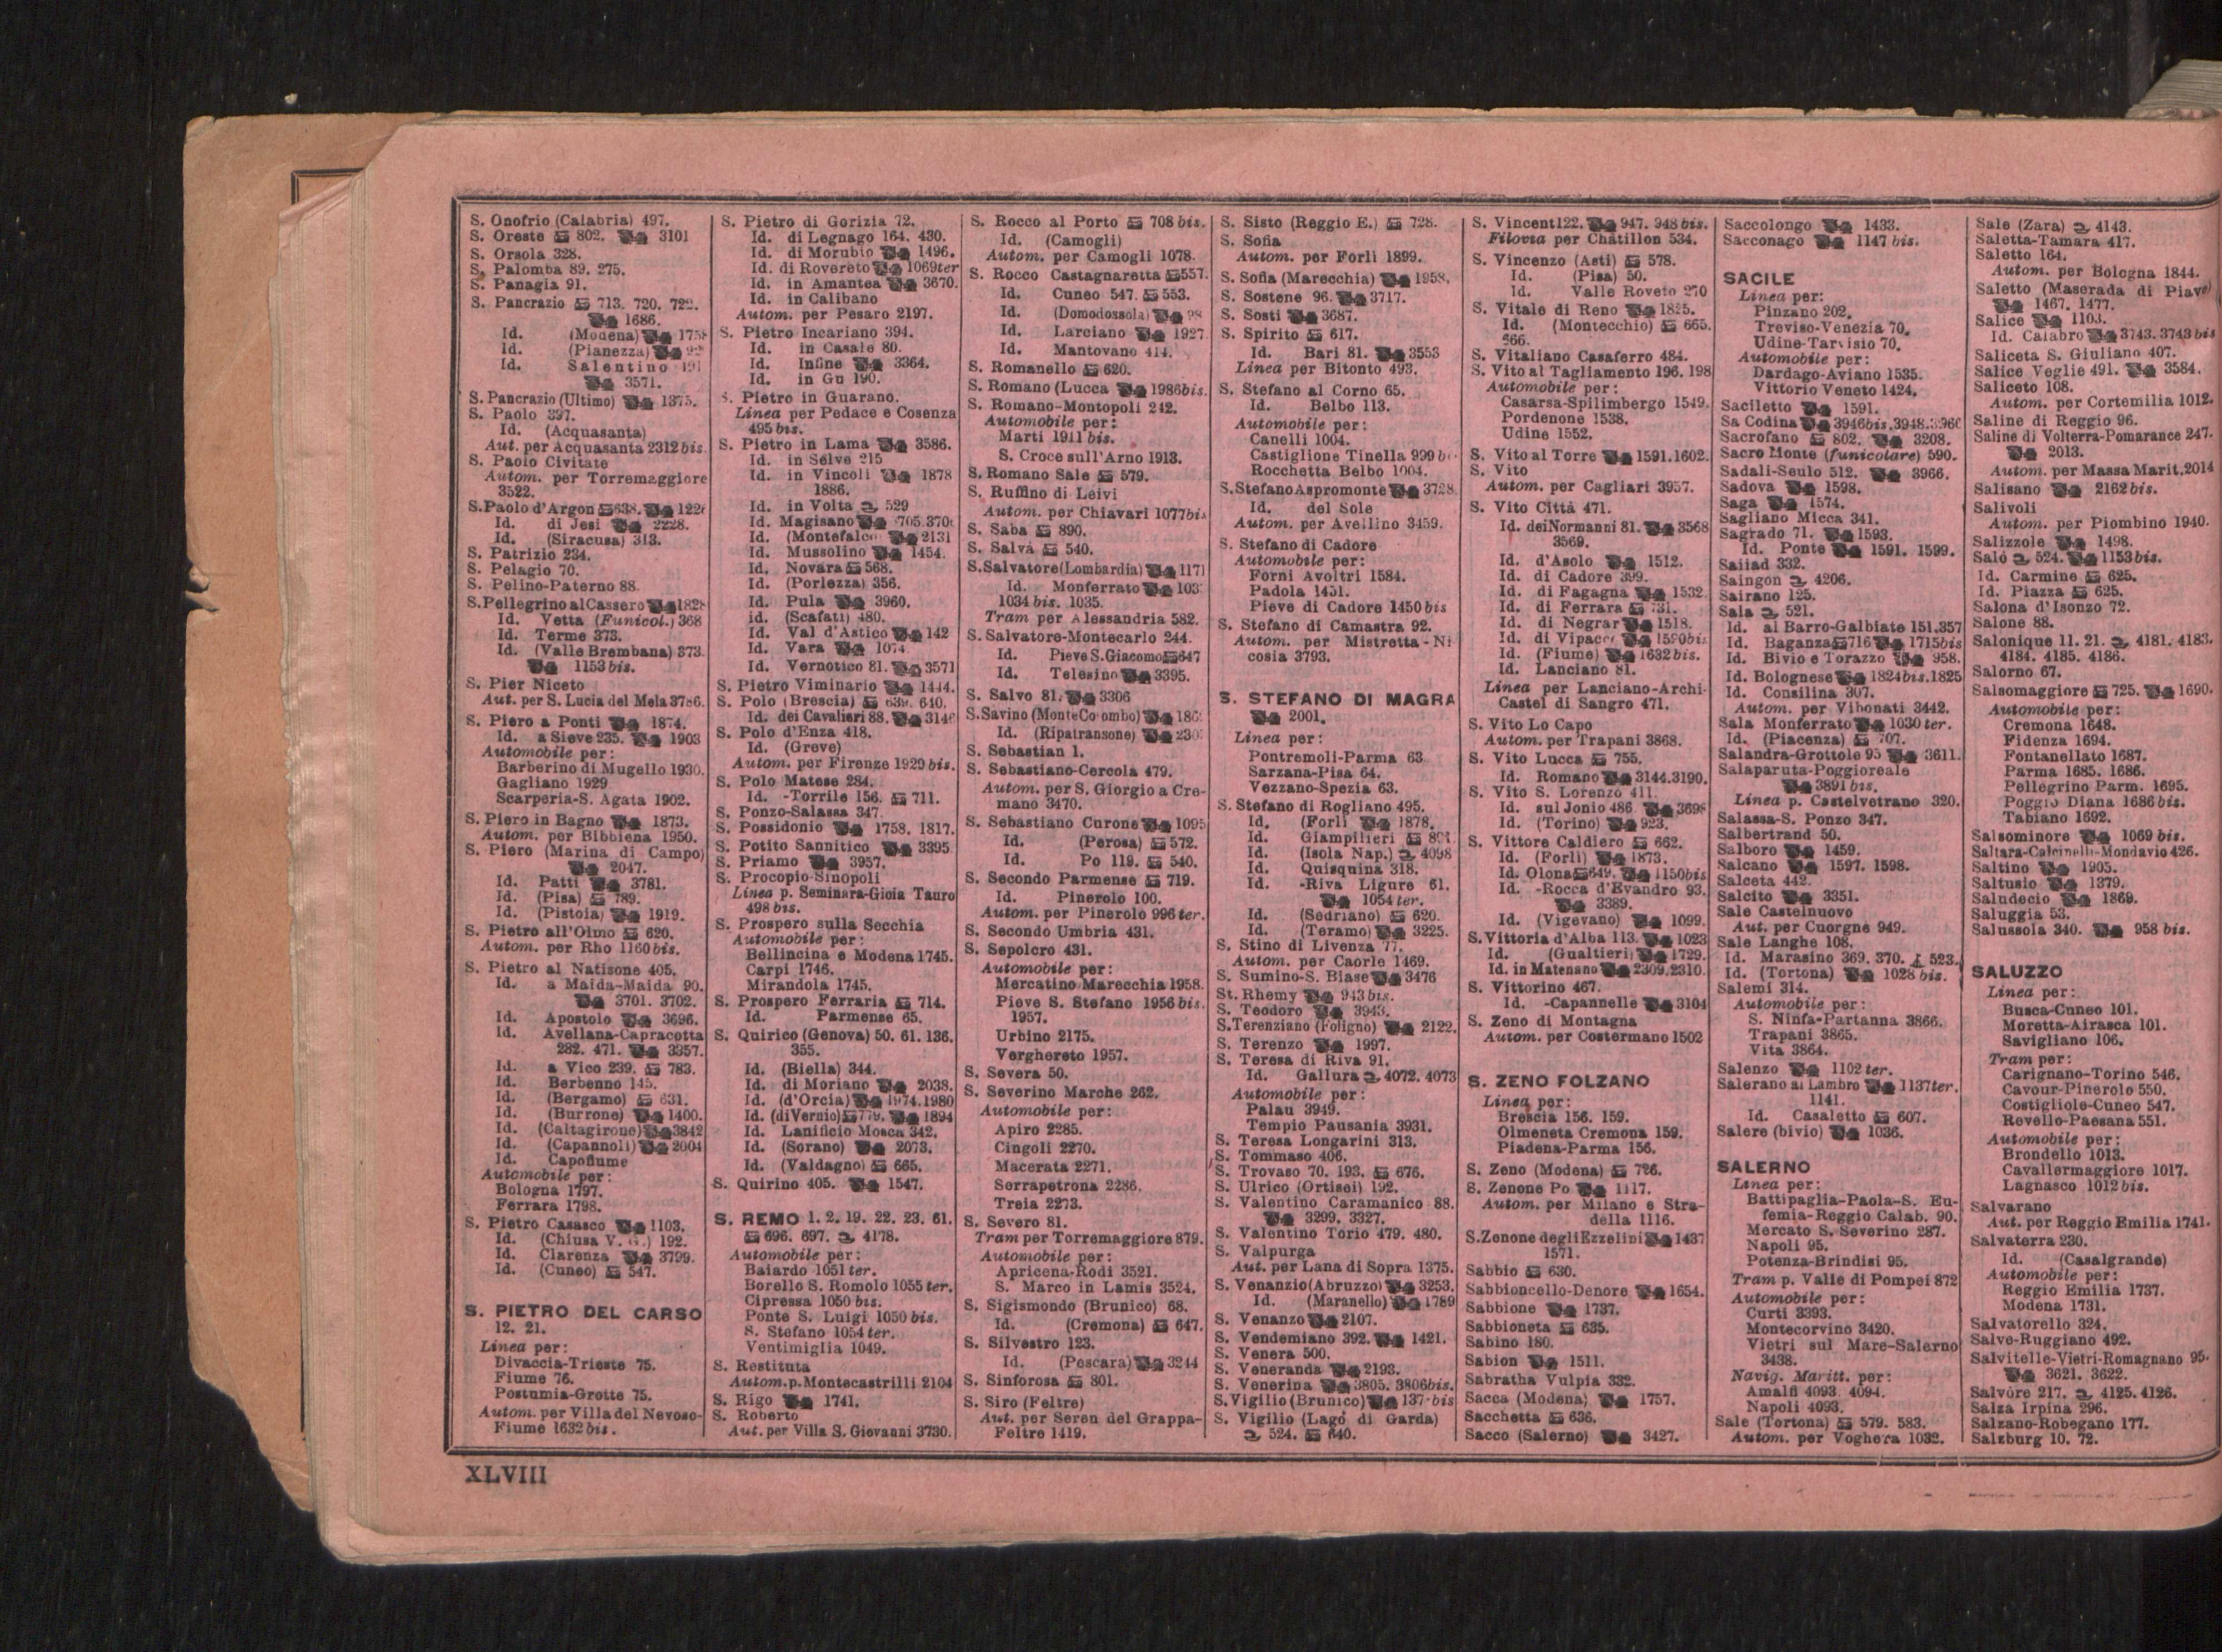 S. Onofrio (Calabria) 497.
S. Oreste 802. 3101
S. Orsola 328.
S. Palomba 89. 275.
S. Panagia 91.
S. Pancrazio 713. 720. 722.
1686.
Id. (Modena)
Id. (Pianezza)
Id. Salentino
3571.
S. Pancrazio (Ultimo) 1375.
S. Paolo 397.
Id. (Acquasanta)
Aut. per Acquasanta 2312 bis.
S. Paolo Civitate
Autom. per Torremaggiore
3522.
S. Paolo d'Argon 638.
Id. di Jesi 2228.
Id. (Siracusa) 313.
S. Patrizio 234.
S. Pelagio 70.
S. Pelino-Paterno 88.
S. Pellegrino al Cassero
Id. Vetta (Funicol.) 368
Id. Terme 373.
Id. (Valle Brembana) 373.
1153 bis.
S. Pier Niceto
Aut. per S. Lucia del Mela 3786.
S. Piero a Ponti 1874.
Id. a Sieve 235. 1903
Automobile per:
Barberino di Mugello 1930.
Gagliano 1929
Scarperia-S. Agata 1902.
S. Piero in Bagno 1873.
Autom. per Bibbiena 1950.
S. Piero (Marina di Campo)
2047.
Id. Patti 3781.
Id. (Pisa) 789.
Id. (Pistoia) 1919.
S. Pietro all'Olmo 620.
Autom. per Rho 1160 bis.
S. Pietro al Natisone 405.
Id. a Maida-Maida 90.
3701. 3702.
Id. Apostolo 3696.
Id. Avellana-Capracotta
282. 471. 3357.
Id. a Vico 239. 783.
Id. Berbenno 145.
Id. (Bergamo) 631.
Id. (Burrone) 1400.
Id. (Caltagirone) 3842
Id. (Capannoli) 2004
Id. Capofiume
Automobile per:
Bologna 1797.
Ferrara 1798.
S. Pietro Casasco 1103.
Id. (Chiusa V. G.) 192.
Id. Clarenza 3799.
Id. (Cuneo) 547.
S. PIETRO DEL CARSO
12. 21.
Linea per:
Divaccia-Trieste 75.
Fiume 76.
Postumia-Grotte 75.
Autom. per Villa del Nevoso-
Fiume 1632 bis.
S. Pietro di Gorizia 72.
Id. di Legnago 164. 430.
Id. di Morubio 1496.
Id. di Rovereto 1069 ter
Id. in Amantea 3670.
Id. in Calibano
Autom. per Pesaro 2197.
S. Pietro Incariano 394.
Id. in Casale 80.
Id. Infine 3364.
Id. in Gu 190.
S. Pietro in Guarano.
Linea per Pedace e Cosenza
495 bis.
S. Pietro in Lama 3586.
Id. in Selve 215
Id. in Vincoli 1878
1886.
Id. in Volta 529
Id. Magisano
Id. (Montefalco 2131
Id. Mussolino 1454.
Id. Novara 568.
Id. (Porlezza) 356.
Id. Pula 3960.
id. (Scafati) 480.
Id. Val d'Astico 142
Id. Vara 1074
Id. Vernotico 81. 3571
S. Pietro Viminario 1444.
S. Polo (Brescia) 639. 640.
Id. dei Cavalieri 88.
S. Polo d'Enza 418.
Id. (Greve)
Autom. per Firenze 1929 bis.
S. Polo Matese 284.
Id. -Torrile 156. 711.
S. Ponzo-Salassa 347.
S. Possidonio 1758. 1817.
S. Potito Sannitico 3395
S. Priamo 3957.
S. Procopio-Sinopoli
Linea p. Seminara-Gioia Tauro
498 bis.
S. Prospero sulla Secchia
Automobile per:
Bellincina e Modena 1745.
Carpi 1746.
Mirandola 1745.
S. Prospero Ferraria 714.
Id. Parmense 65.
S. Quirico (Genova) 50. 61. 136.
355.
Id. (Biella) 344.
Id. di Moriano 2038.
Id. (d'Orcia) 1974.1980
Id. (di Vernio) 779. 1894
Id. Lanificio Mosca 342.
Id. (Sorano) 2073.
Id. (Valdagno) 665.
S. Quirino 405. 1547.
S. REMO 1. 2. 19. 22. 23. 61.
696. 697. 4178.
Automobile per:
Baiardo 1051 ter.
Borello S. Romolo 1055 ter.
Cipressa 1050 bis.
Ponte S. Luigi 1050 bis.
S. Stefano 1054 ter.
Ventimiglia 1049.
S. Restituta
Autom. p. Montecastrilli 2104
S. Rigo 1741.
S. Roberto
Aut. per Villa S. Giovanni 3730.
S. Rocco al Porto 708 bis.
Id. (Camogli)
Autom. per Camogli 1078.
S. Rocco Castagnaretta 557.
Id. Cuneo 547. 553.
Id. (Domodossola)
Id. Larciano 1927
Id. Mantovano 414.
S. Romanello 620.
S. Romano (Lucca 1986 bis.
S. Romano-Montopoli 242.
Automobile per:
Marti 1911 bis.
S. Croce sull'Arno 1913.
S. Romano Sale 579.
S. Ruffino di Leivi
Autom. per Chiavari 1077 bis
S. Saba 890.
S. Salvà 540.
S. Salvatore (Lombardia) 1171
Id. Monferrato
1034 bis. 1035.
Tram per Alessandria 582.
S. Salvatore-Montecarlo 244.
Id. Pieve S. Giacomo 647
Id. Telesino 3395.
S. Salvo 81. 3306
S. Savino (Monte Colombo)
Id. (Ripatransone)
S. Sebastian 1.
S. Sebastiano-Cercola 479.
Autom. per S. Giorgio a Cre-
mano 3470.
S. Sebastiano Curone 1095
Id. (Perosa) 572.
Id. Po 119. 540.
S. Secondo Parmense 719.
Id. Pinerolo 100.
Autom. per Pinerolo 996 ter.
S. Secondo Umbria 431.
S. Sepolcro 431.
Automobile per:
Mercatino Marecchia 1958.
Pieve S. Stefano 1956 bis.
1957.
Urbino 2175.
Verghereto 1957.
S. Severa 50.
S. Severino Marche 262.
Automobile per:
Apiro 2285.
Cingoli 2270.
Macerata 2271.
Serrapetrona 2286.
Treia 2273.
S. Severo 81.
Tram per Torremaggiore 879.
Automobile per:
Apricena-Rodi 3521.
S. Marco in Lamis 3524.
S. Sigismondo (Brunico) 68.
Id. (Cremona) 647.
S. Silvestro 123.
Id. (Pescara) 3244
S. Sinforosa 801.
S. Siro (Feltre)
Aut. per Seren del Grappa-
Feltre 1419.
S. Sisto (Reggio E.) 728.
S. Sofia
Autom. per Forlì 1899.
S. Sofia (Marecchia) 1958.
S. Sostene 96. 3717.
S. Sosti 3687.
S. Spirito 617.
Id. Bari 81. 3553
Linea per Bitonto 493.
S. Stefano al Corno 65.
Id. Belbo 113.
Automobile per:
Canelli 1004.
Castiglione Tinella 999
Rocchetta Belbo 1004.
S. Stefano Aspromonte 3728
Id. del Sole
Autom. per Avellino 3459.
S. Stefano di Cadore
Automobile per:
Forni Avoltri 1584.
Padola 1451.
Pieve di Cadore 1450 bis
S. Stefano di Camastra 92.
Autom. per Mistretta-Ni
cosia 3793.
S. STEFANO DI MAGRA
2001.
Linea per:
Pontremoli-Parma 63
Sarzana-Pisa 64.
Vezzano-Spezia 63.
S. Stefano di Rogliano 495.
Id. (Forlì 1878.
Id. Giampilieri
Id. (Isola Nap.) 4098
Id. Quisquina 318.
Id. -Riva Ligure 61.
1054 ter.
Id. (Sedriano) 620.
Id. (Teramo) 3225.
S. Stino di Livenza 77.
Autom. per Caorle 1469.
S. Sumino-S. Biase 3476
St. Rhemy 943 bis.
S. Teodoro 3943.
S. Terenziano (Foligno) 2122.
S. Terenzo 1997.
S. Teresa di Riva 91.
Id. Gallura 4072. 4073
Automobile per:
Palau 3949.
Tempio Pausania 3931.
S. Teresa Longarini 313.
S. Tommaso 406.
S. Trovaso 70. 193. 676.
S. Ulrico (Ortisei) 192.
S. Valentino Caramanico 88.
3299. 3327.
S. Valentino Torio 479. 480.
S. Valpurga
Aut. per Lana di Sopra 1375.
S. Venanzio (Abruzzo) 3253.
Id. (Maranello) 1789
S. Venanzo 2107.
S. Vendemiano 392. 1421.
S. Venera 500.
S. Veneranda 2193.
S. Venerina 3805. 3806 bis.
S. Vigilio (Brunico) 137 bis
S. Vigilio (Lago di Garda)
524. 640.
S. Vincent 122. 947. 948 bis.
Filovia per Châtillon 534.
S. Vincenzo (Asti) 578.
Id. (Pisa) 50.
Id. Valle Roveto 270
S. Vitale di Reno 1825.
Id. (Montecchio) 665.
666.
S. Vitaliano Casaferro 484.
S. Vito al Tagliamento 196. 198
Automobile per:
Casarsa-Spilimbergo 1549.
Pordenone 1538.
Udine 1552.
S. Vito al Torre 1591.1602.
S. Vito
Autom. per Cagliari 3957.
S. Vito Città 471.
Id. dei Normanni 81. 3568
3569.
Id. d'Asolo 1512.
Id. di Cadore 399.
Id. di Fagagna 1532
Id. di Ferrara 731.
Id. di Negrar 1518.
Id. di Vipacco 1590 bis
Id. (Fiume) 1632 bis.
Id. Lanciano 81.
Linea per Lanciano-Archi-
Castel di Sangro 471.
S. Vito Lo Capo
Autom. per Trapani 3868.
S. Vito Lucca 755.
Id. Romano 3144.3190.
S. Vito S. Lorenzo 411.
Id. sul Jonio 486. 3698
Id. (Torino) 923.
S. Vittore Caldiero 662.
Id. (Forlì) 1873.
Id. Olona 649. 1150 bis
Id. -Rocca d'Evandro 93.
3389.
Id. (Vigevano) 1099.
S. Vittoria d'Alba 113. 1023
Id. (Gualtieri) 1729.
Id. in Matenano 2309.2310.
S. Vittorino 467.
Id. -Capannelle 3104
S. Zeno di Montagna
Autom. per Costermano 1502
S. ZENO FOLZANO
Linea per:
Brescia 156. 159.
Olmeneta Cremona 159.
Piadena-Parma 156.
S. Zeno (Modena) 726.
S. Zenone Po 1117.
Autom. per Milano e Stra-
della 1116.
S. Zenone degli Ezzelini 1437
1571.
Sabbio 630.
Sabbioncello-Denore 1654.
Sabbione 1737.
Sabbioneta 635.
Sabino 180.
Sabion 1511.
Sabratha Vulpia 332.
Sacca (Modena) 1757.
Sacchetta 636.
Sacco (Salerno) 3427.
Saccolongo 1433.
Sacconago 1147 bis.
SACILE
Linea per:
Pinzano 202.
Treviso-Venezia 70.
Udine-Tarvisio 70.
Automobile per:
Dardago-Aviano 1535.
Vittorio Veneto 1424.
Saciletto 1591.
Sa Codina 3946 bis.3948.3960
Sacrofano 802. 3208.
Sacro Monte (funicolare) 590.
Sadali-Seulo 512. 3966.
Sadova 1598.
Saga 1574.
Sagliano Micca 341.
Sagrado 71. 1593.
Id. Ponte 1591. 1599.
Saiiad 332.
Saingon 4206.
Sairano 125.
Sala 521.
Id. al Barro-Galbiate 151.357
Id. Baganza 716 1715 bis
Id. Bivio e Torazzo 958.
Id. Bolognese 1824 bis.1825
Id. Consilina 307.
Autom. per Vibonati 3442.
Sala Monferrato 1030 ter.
Id. (Piacenza) 707.
Salandra-Grottole 95 3611.
Salaparuta-Poggioreale
3891 bis.
Linea p. Castelvetrano 320.
Salassa-S. Ponzo 347.
Salbertrand 50.
Salboro 1459.
Salcano 1597. 1598.
Salceta 442.
Salcito 3351.
Sale Castelnuovo
Aut. per Cuorgnè 949.
Sale Langhe 108.
Id. Marasino 369. 370. 523.
Id. (Tortona) 1028 bis.
Salemi 314.
Automobile per:
S. Ninfa-Partanna 3866.
Trapani 3865.
Vita 3864.
Salenzo 1102 ter.
Salerano al Lambro 1137 ter.
1141.
Id. Casaletto 607.
Salere (bivio) 1036.
SALERNO
Linea per:
Battipaglia-Paola-S. Eu-
femia-Reggio Calab. 90.
Mercato S. Severino 287.
Napoli 95.
Potenza-Brindisi 95.
Tram p. Valle di Pompei 872
Automobile per:
Curti 3393.
Montecorvino 3420.
Vietri sul Mare-Salerno
3438.
Navig. Maritt. per:
Amalfi 4093. 4094.
Napoli 4093.
Sale (Tortona) 579. 583.
Autom. per Voghera 1032.
Sale (Zara) 4143.
Saletta-Tamara 417.
Saletto 164.
Autom. per Bologna 1844.
Saletto (Maserada di Piave)
1467. 1477.
Salice 1103.
Id. Calabro 3743. 3743 bis
Saliceta S. Giuliano 407.
Salice Veglie 491. 3584.
Saliceto 108.
Autom. per Cortemilia 1012.
Saline di Reggio 96.
Saline di Volterra-Pomarance 247.
2013.
Autom. per Massa Marit. 2014
Salisano 2162 bis.
Salivoli
Autom. per Piombino 1940.
Salizzole 1498.
Salò 524. 1153 bis.
Id. Carmine 625.
Id. Piazza 625.
Salona d'Isonzo 72.
Salone 88.
Salonique 11. 21. 4181. 4183.
4184. 4185. 4186.
Salorno 67.
Salsomaggiore 725. 1690.
Automobile per:
Cremona 1648.
Fidenza 1694.
Fontanellato 1687.
Parma 1685. 1686.
Pellegrino Parm. 1695.
Poggio Diana 1686 bis.
Tabiano 1692.
Salsominore 1069 bis.
Saltara-Calcinelli-Mondavio 426.
Saltino 1905.
Saltusio 1379.
Saludecio 1869.
Saluggia 53.
Salussola 340. 958 bis.
SALUZZO
Linea per:
Busca-Cuneo 101.
Moretta-Airasca 101.
Savigliano 106.
Tram per:
Carignano-Torino 546.
Cavour-Pinerolo 550.
Costigliole-Cuneo 547.
Revello-Paesana 551.
Automobile per:
Brondello 1013.
Cavallermaggiore 1017.
Lagnasco 1012 bis.
Salvarano
Aut. per Reggio Emilia 1741.
Salvaterra 230.
Id. (Casalgrande)
Automobile per:
Reggio Emilia 1737.
Modena 1731.
Salvatorello 324.
Salve-Ruggiano 492.
Salvitelle-Vietri-Romagnano 95.
3621. 3622.
Salvòre 217. 4125. 4126.
Salza Irpina 296.
Salzano-Robegano 177.
Salzburg 10. 72.
XLVIII